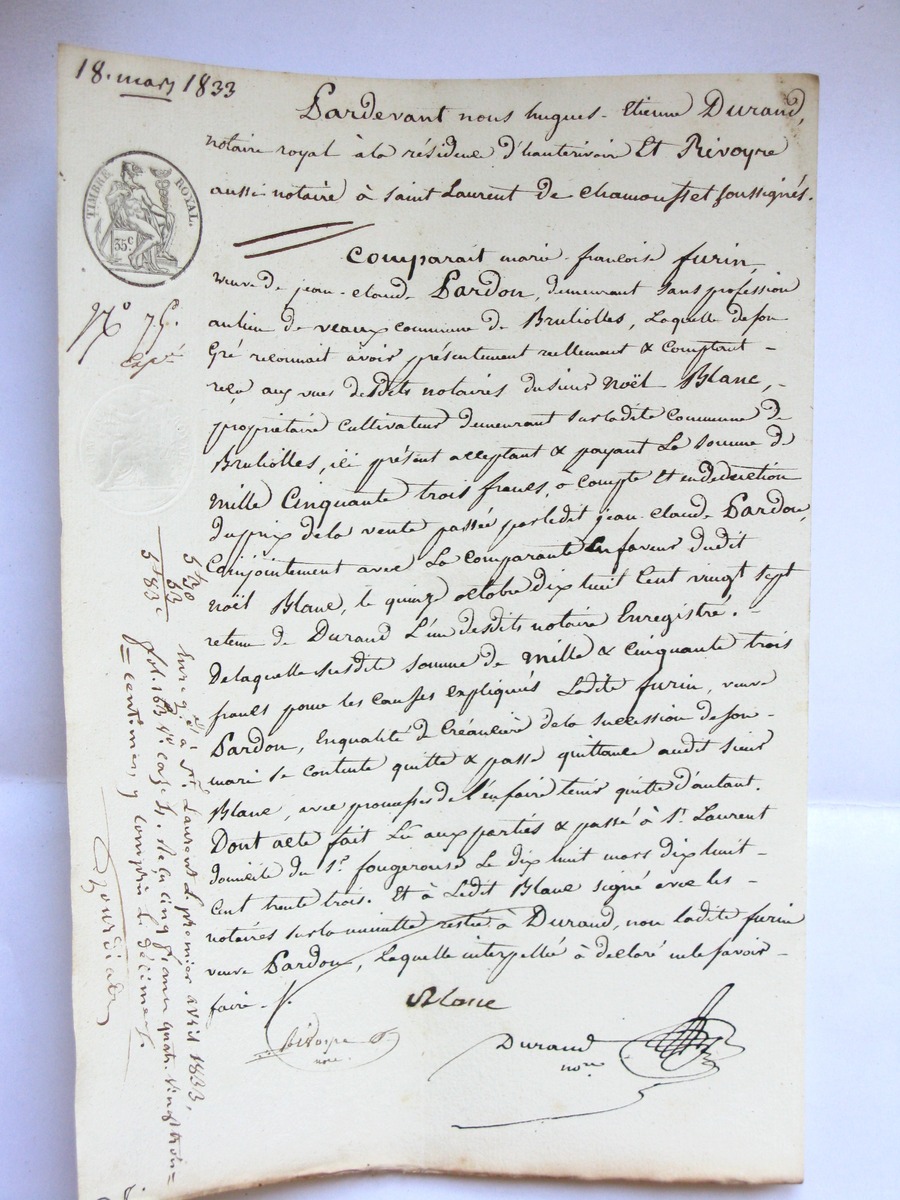 18. mars 1833
Pardevant nous hugues-Etienne Durand,
notaire royal à la résidence d'hauterivoir Et Rivoyre
aussi notaire à saint Laurent de chamousset soussignés.
TIMBRE ROYAL.
35 c
Comparait marie françoise furin,
veuve de jean-claude Pardon, demeurant sans profession
au lieu de veaux commune de Bruliolles, Laquelle de son
Gré reconnait avoir présentement reellement & comptant -
reçu aux vues desdits notaires du sieur Noël Blanc, -
propriétaire cultivateur demeurant sur ladite commune de
Brulliolles, ici présent acceptant & payant La somme de
mille Cinquante trois francs, à compte Et en deduction
du prix de la vente passée par ledit jean-claude Pardon,
Conjointement avec La comparante En faveur dudit
Noël Blanc, le quinze octobre dix huit Cent vingt sept
retenue de Durand L'un desdits notaire Enregistré. -
De laquelle susdite somme de mille & cinquante trois
francs pour les causses expliqués Ladite furin, veuve
Pardon, En qualité de Créancière de la succession de son -
mari se contente quitte & passe quittance audit sieur
Blanc, avec promesse de l'en faire tenir quitte d'autant.
Dont acte fait Lu aux parties & passé à St. Laurent
domicile du Sr. fougerouse Le dix huit mars dix huit -
Cent trente trois. Et à Ledit Blanc signé avec les -
notaires sur la minutte restée à Durand, non ladite furin
veuve Pardon, Laquelle interpellée à déclaré ne le savoir -
faire -/.
Blanc
Rivoyre
nore.
Durand
nore
No 75.
Expé
5 30
53
5 83 c
Enregt. à St. Laurent le premier avril 1833,
fol. 163 Vo. case 4. Reçu cinq francs quatre vingt trois =
= centimes, y compris le décime.